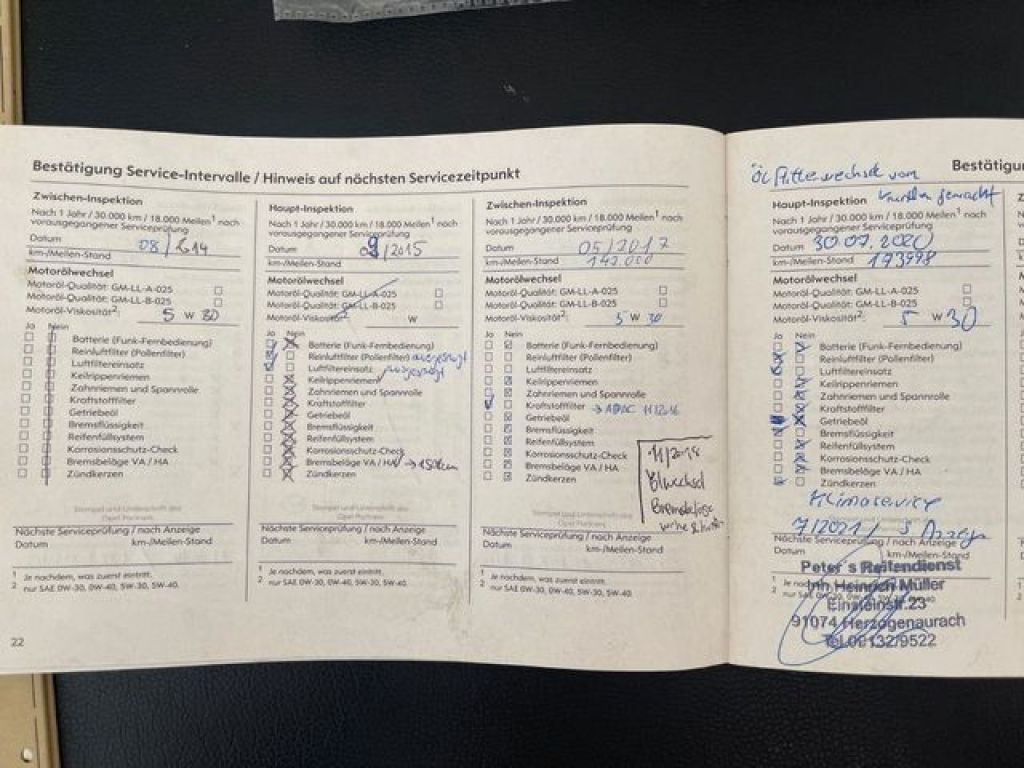 Bestätigung Service-Intervalle / Hinweis auf nächsten Servicezeitpunkt
Zwischen-Inspektion
Nach 1 Jahr / 30.000 km / 18.000 Meilen¹ nach
vorausgegangener Serviceprüfung
Datum 08/
km-/Meilen-Stand
Motorölwechsel
Motoröl-Qualität: GM-LL-A-025
Motoröl-Qualität: GM-LL-B-025
Motoröl-Viskosität²: 5 W 30
Ja Nein
Batterie (Funk-Fernbedienung)
Reinluftfilter (Pollenfilter)
Luftfiltereinsatz
Keilrippenriemen
Zahnriemen und Spannrolle
Kraftstofffilter
Getriebeöl
Bremsflüssigkeit
Reifenfüllsystem
Korrosionsschutz-Check
Bremsbeläge VA / HA
Zündkerzen
Stempel und Unterschrift des
Opel Partners
Nächste Serviceprüfung / nach Anzeige
Datum km-/Meilen-Stand
1 Je nachdem, was zuerst eintritt.
2 nur SAE 0W-30, 0W-40, 5W-30, 5W-40.
22
Haupt-Inspektion
Nach 1 Jahr / 30.000 km / 18.000 Meilen¹ nach
vorausgegangener Serviceprüfung
Datum 09/2015
km-/Meilen-Stand
Motorölwechsel
Motoröl-Qualität: GM-LL-A-025
Motoröl-Qualität: GM-LL-B-025
Motoröl-Viskosität²: W
Ja Nein
Batterie (Funk-Fernbedienung)
Reinluftfilter (Pollenfilter)
Luftfiltereinsatz
Keilrippenriemen
Zahnriemen und Spannrolle
Kraftstofffilter
Getriebeöl
Bremsflüssigkeit
Reifenfüllsystem
Korrosionsschutz-Check
Bremsbeläge VA / HA
Zündkerzen
Stempel und Unterschrift des
Opel Partners
Nächste Serviceprüfung / nach Anzeige
Datum km-/Meilen-Stand
1 Je nachdem, was zuerst eintritt.
2 nur SAE 0W-30, 0W-40, 5W-30, 5W-40.
Zwischen-Inspektion
Nach 1 Jahr / 30.000 km / 18.000 Meilen¹ nach
vorausgegangener Serviceprüfung
Datum 05/2017
km-/Meilen-Stand 142.000
Motorölwechsel
Motoröl-Qualität: GM-LL-A-025
Motoröl-Qualität: GM-LL-B-025
Motoröl-Viskosität²: 5 W 30
Ja Nein
Batterie (Funk-Fernbedienung)
Reinluftfilter (Pollenfilter)
Luftfiltereinsatz
Keilrippenriemen
Zahnriemen und Spannrolle
Kraftstofffilter → ADAC 11/2016
Getriebeöl
Bremsflüssigkeit
Reifenfüllsystem
Korrosionsschutz-Check
Bremsbeläge VA / HA
Zündkerzen
11/2018
Ölwechsel
Bremsbeläge
Stempel und Unterschrift des
Opel Partners
Nächste Serviceprüfung / nach Anzeige
Datum km-/Meilen-Stand
1 Je nachdem, was zuerst eintritt.
2 nur SAE 0W-30, 0W-40, 5W-30, 5W-40.
von
Kunden gemacht
Haupt-Inspektion
Nach 1 Jahr / 30.000 km / 18.000 Meilen¹ nach
vorausgegangener Serviceprüfung
Datum 30.07.2020
km-/Meilen-Stand 173998
Motorölwechsel
Motoröl-Qualität: GM-LL-A-025
Motoröl-Qualität: GM-LL-B-025
Motoröl-Viskosität²: 5 W 30
Ja Nein
Batterie (Funk-Fernbedienung)
Reinluftfilter (Pollenfilter)
Luftfiltereinsatz
Keilrippenriemen
Zahnriemen und Spannrolle
Kraftstofffilter
Getriebeöl
Bremsflüssigkeit
Reifenfüllsystem
Korrosionsschutz-Check
Bremsbeläge VA / HA
Zündkerzen
Klimaservice
7/2021/
Nächste Serviceprüfung / nach Anzeige
Datum km-/Meilen-Stand
Peter's Reifendienst
Inh. Heinrich Müller
Einsteinstr.23
91074 Herzogenaurach
Tel.09132/9522